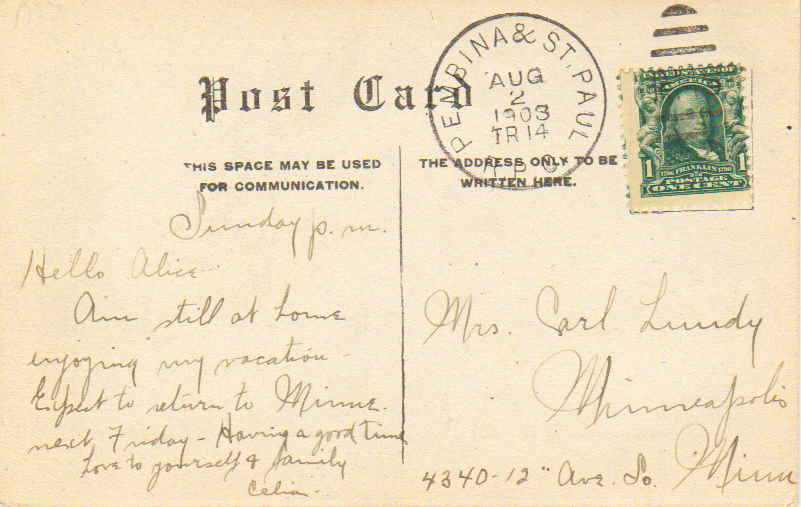 Post Card
THIS SPACE MAY BE USED
FOR COMMUNICATION.
THE ADDRESS ONLY TO BE
WRITTEN HERE.
PEMBINA & ST. PAUL
AUG
2
1908
TR 14
R.P.O.
1 FRANKLIN 1
POSTAGE
ONE CENT
Sunday p.m.
Hello Alice -
Am still at home
enjoying my vacation -
Expect to return to Minne.
next Friday - Having a good time
Love to yourself & family
Mrs. Carl Lundy
Minneapolis
4340-12" Ave. So. Minn